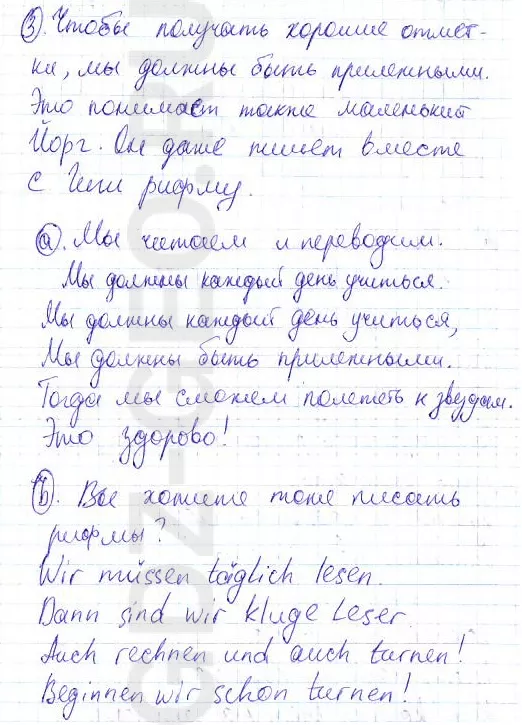 3. Чтобы получать хорошие отмет-
ки, мы должны быть прилежными.
Это понимает также маленький
Йорг. Он даже пишет вместе
с Гиги рифму.
a. Мы читаем и переводим.
Мы должны каждый день учиться.
Мы должны каждый день учиться,
Мы должны быть прилежными.
Тогда мы сможем полететь к звездам.
Это здорово!
b. Вы хотите тоже писать
рифмы?
Wir müssen täglich lesen.
Dann sind wir kluge Leser
Auch rechnen und auch turnen!
Beginnen wir schon turnen!
GDZ-GEO.RU